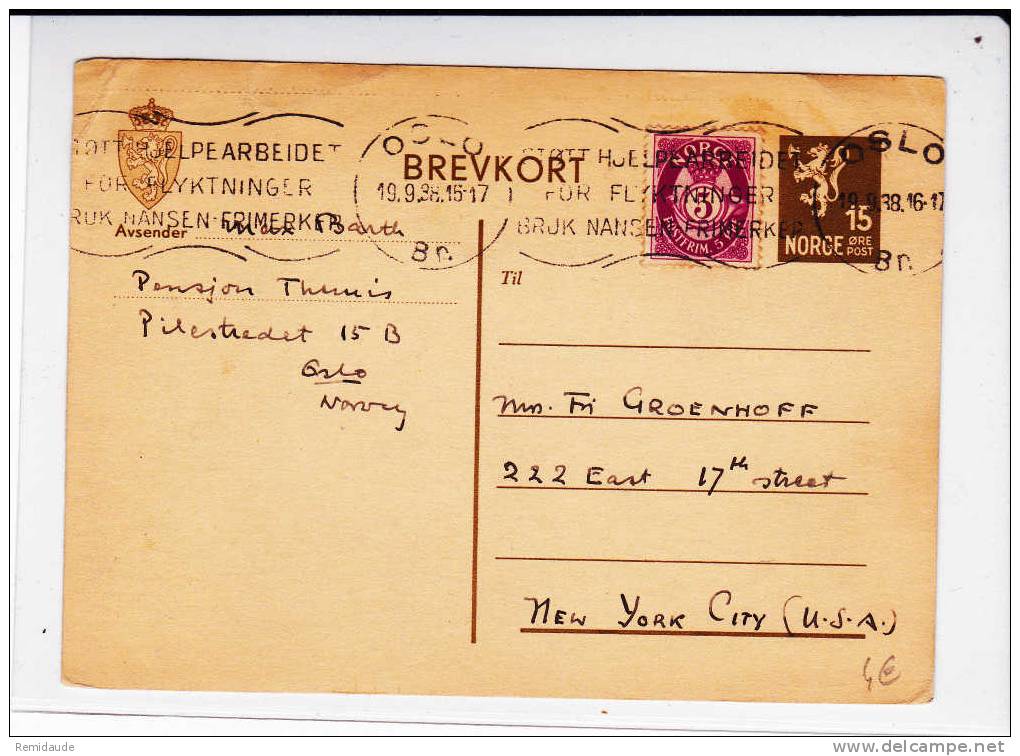 STØTT HJELPEARBEIDET
FOR FLYKTNINGER
BRUK NANSEN-FRIMERKER
OSLO
19.9.38.16-17
Br.
BREVKORT
STØTT HJELPEARBEIDET
FOR FLYKTNINGER
BRUK NANSEN FRIMERKER
NORGE
5
POSTFRIM. 5
OSLO
19.9.38.16-17
Br.
15
NORGE ØRE POST
Avsender Max Barth
Pensjon Themis
Pilestredet 15 B
Oslo
Norway
Til
Mrs. Fri GROENHOFF
222 East 17th street
NEW YORK CITY (U.S.A.)
4€
Remidaude
www.delcampe.net